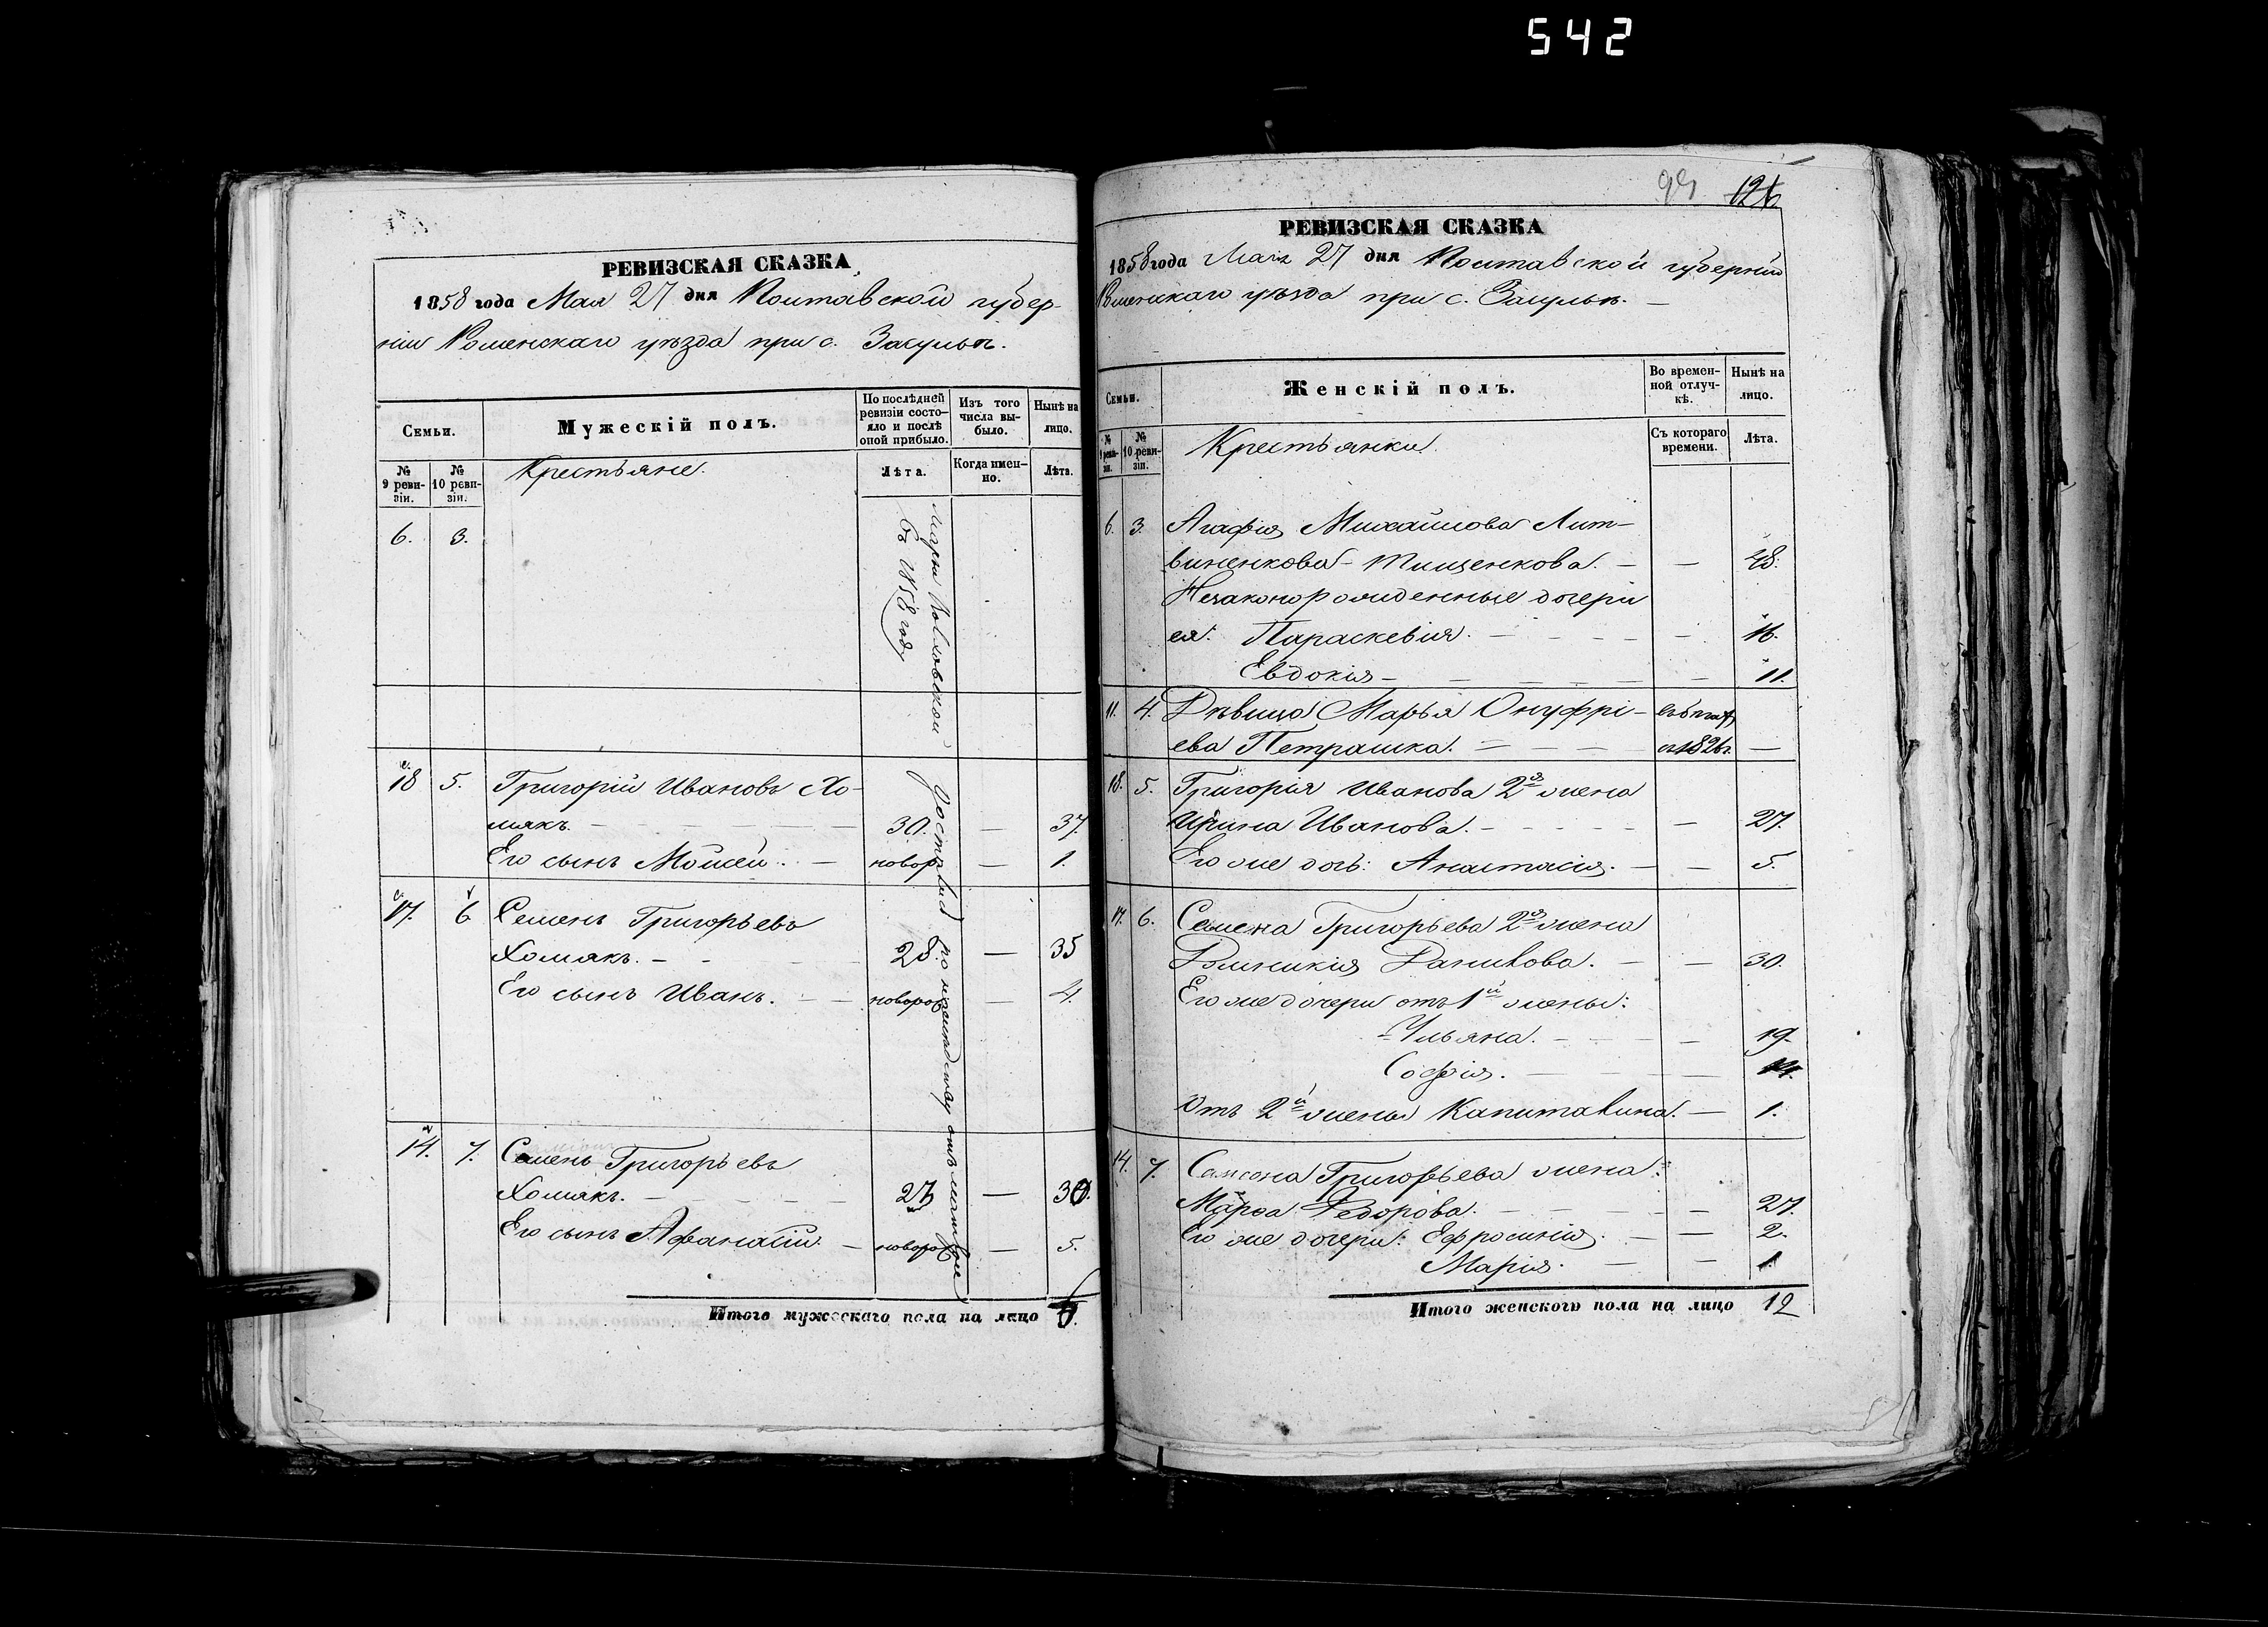 542
РЕВИЗСКАЯ СКАЗКА
1858 года Мая 27 дня Полтавской губер-
ніи Роменскаго уѣзда при с. Засульѣ.
Семьи.
Мужескій полъ.
По послѣдней ревизіи состо-
яло и послѣ оной прибыло.
Изъ того числа вы-
было.
Нынѣ на лицо.
№ 9 реви-
зіи.
№ 10 реви-
зіи.
Крестьяне.
Лѣта.
Когда имен-
но.
Лѣта.
6. 3.
Достались по наслѣдству отъ
въ 1858 году
18 5. Григорій Ивановъ Хо-
мякъ. 30. — 37.
Его сынъ Мойсей. — новор. — 1.
17. 6 Семенъ Григорьевъ
Хомякъ. 28. — 35
Его сынъ Иванъ. — новорож — 4.
14. 7. Григорьевъ
Хомякъ. — 30.
Его сынъ Афанасій. — новорож — 5.
Итого мужескаго пола на лицо 6.
126
РЕВИЗСКАЯ СКАЗКА
1858 года Мая 27 дня Полтавской губерніи
Роменскаго уѣзда при с. Засульѣ. —
Семьи.
Женскій полъ.
Во времен-
ной отлуч-
кѣ.
Нынѣ на лицо.
№ 9 реви-
зіи.
№ 10 реви-
зіи.
Крестьянки.
Съ котораго времени.
Лѣта.
6. 3. Агафія Михайлова Лит-
виненкова-Тищенкова. — — 48.
Незаконорожденные дочери
ея: Параскевія. — — 16.
Евдокія — — 11.
11. 4. Дѣвица Марья Онуфрі-
ева Петрашка. — 1826г. —
18. 5. Григорія Иванова 2я жена
Ирина Иванова. — — 27.
Его же дочь: Анастасія. — — 5.
17. 6. Семена Григорьева 2я жена
Домникія Данилова. — — 30.
Его же дочери отъ 1й жены:
Ульяна. — — 19.
Софія. — — 14.
Отъ 2й жены Капиталина. — 1.
14. 7. Самсона Григорьева жена:
Марѳа Ѳедорова. — — 27.
Его же дочери: Ефросинія. — — 2.
Марія. — — 1
Итого женскаго пола на лицо 12